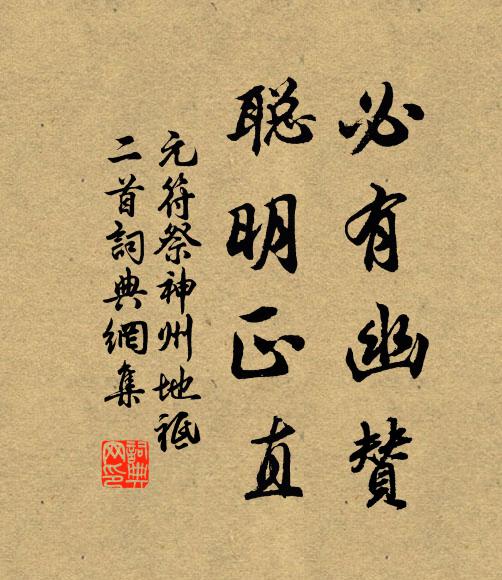 必有幽赞
聪明正直
元符祭神州地祇
二首詞典網集
詞典網印